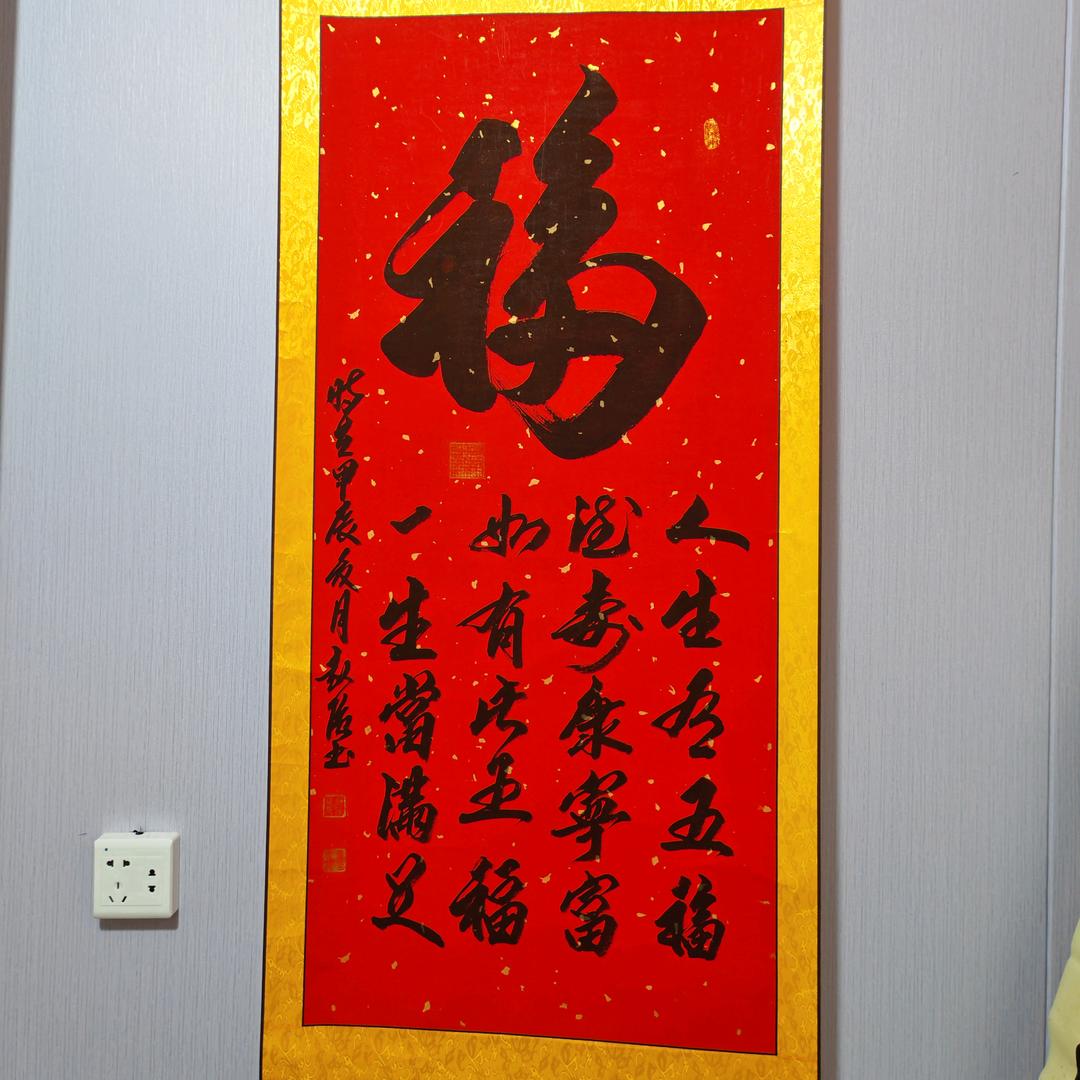 福
人生有五福
德寿康寧富
如有此五福
一生當滿足
时在甲辰夏月